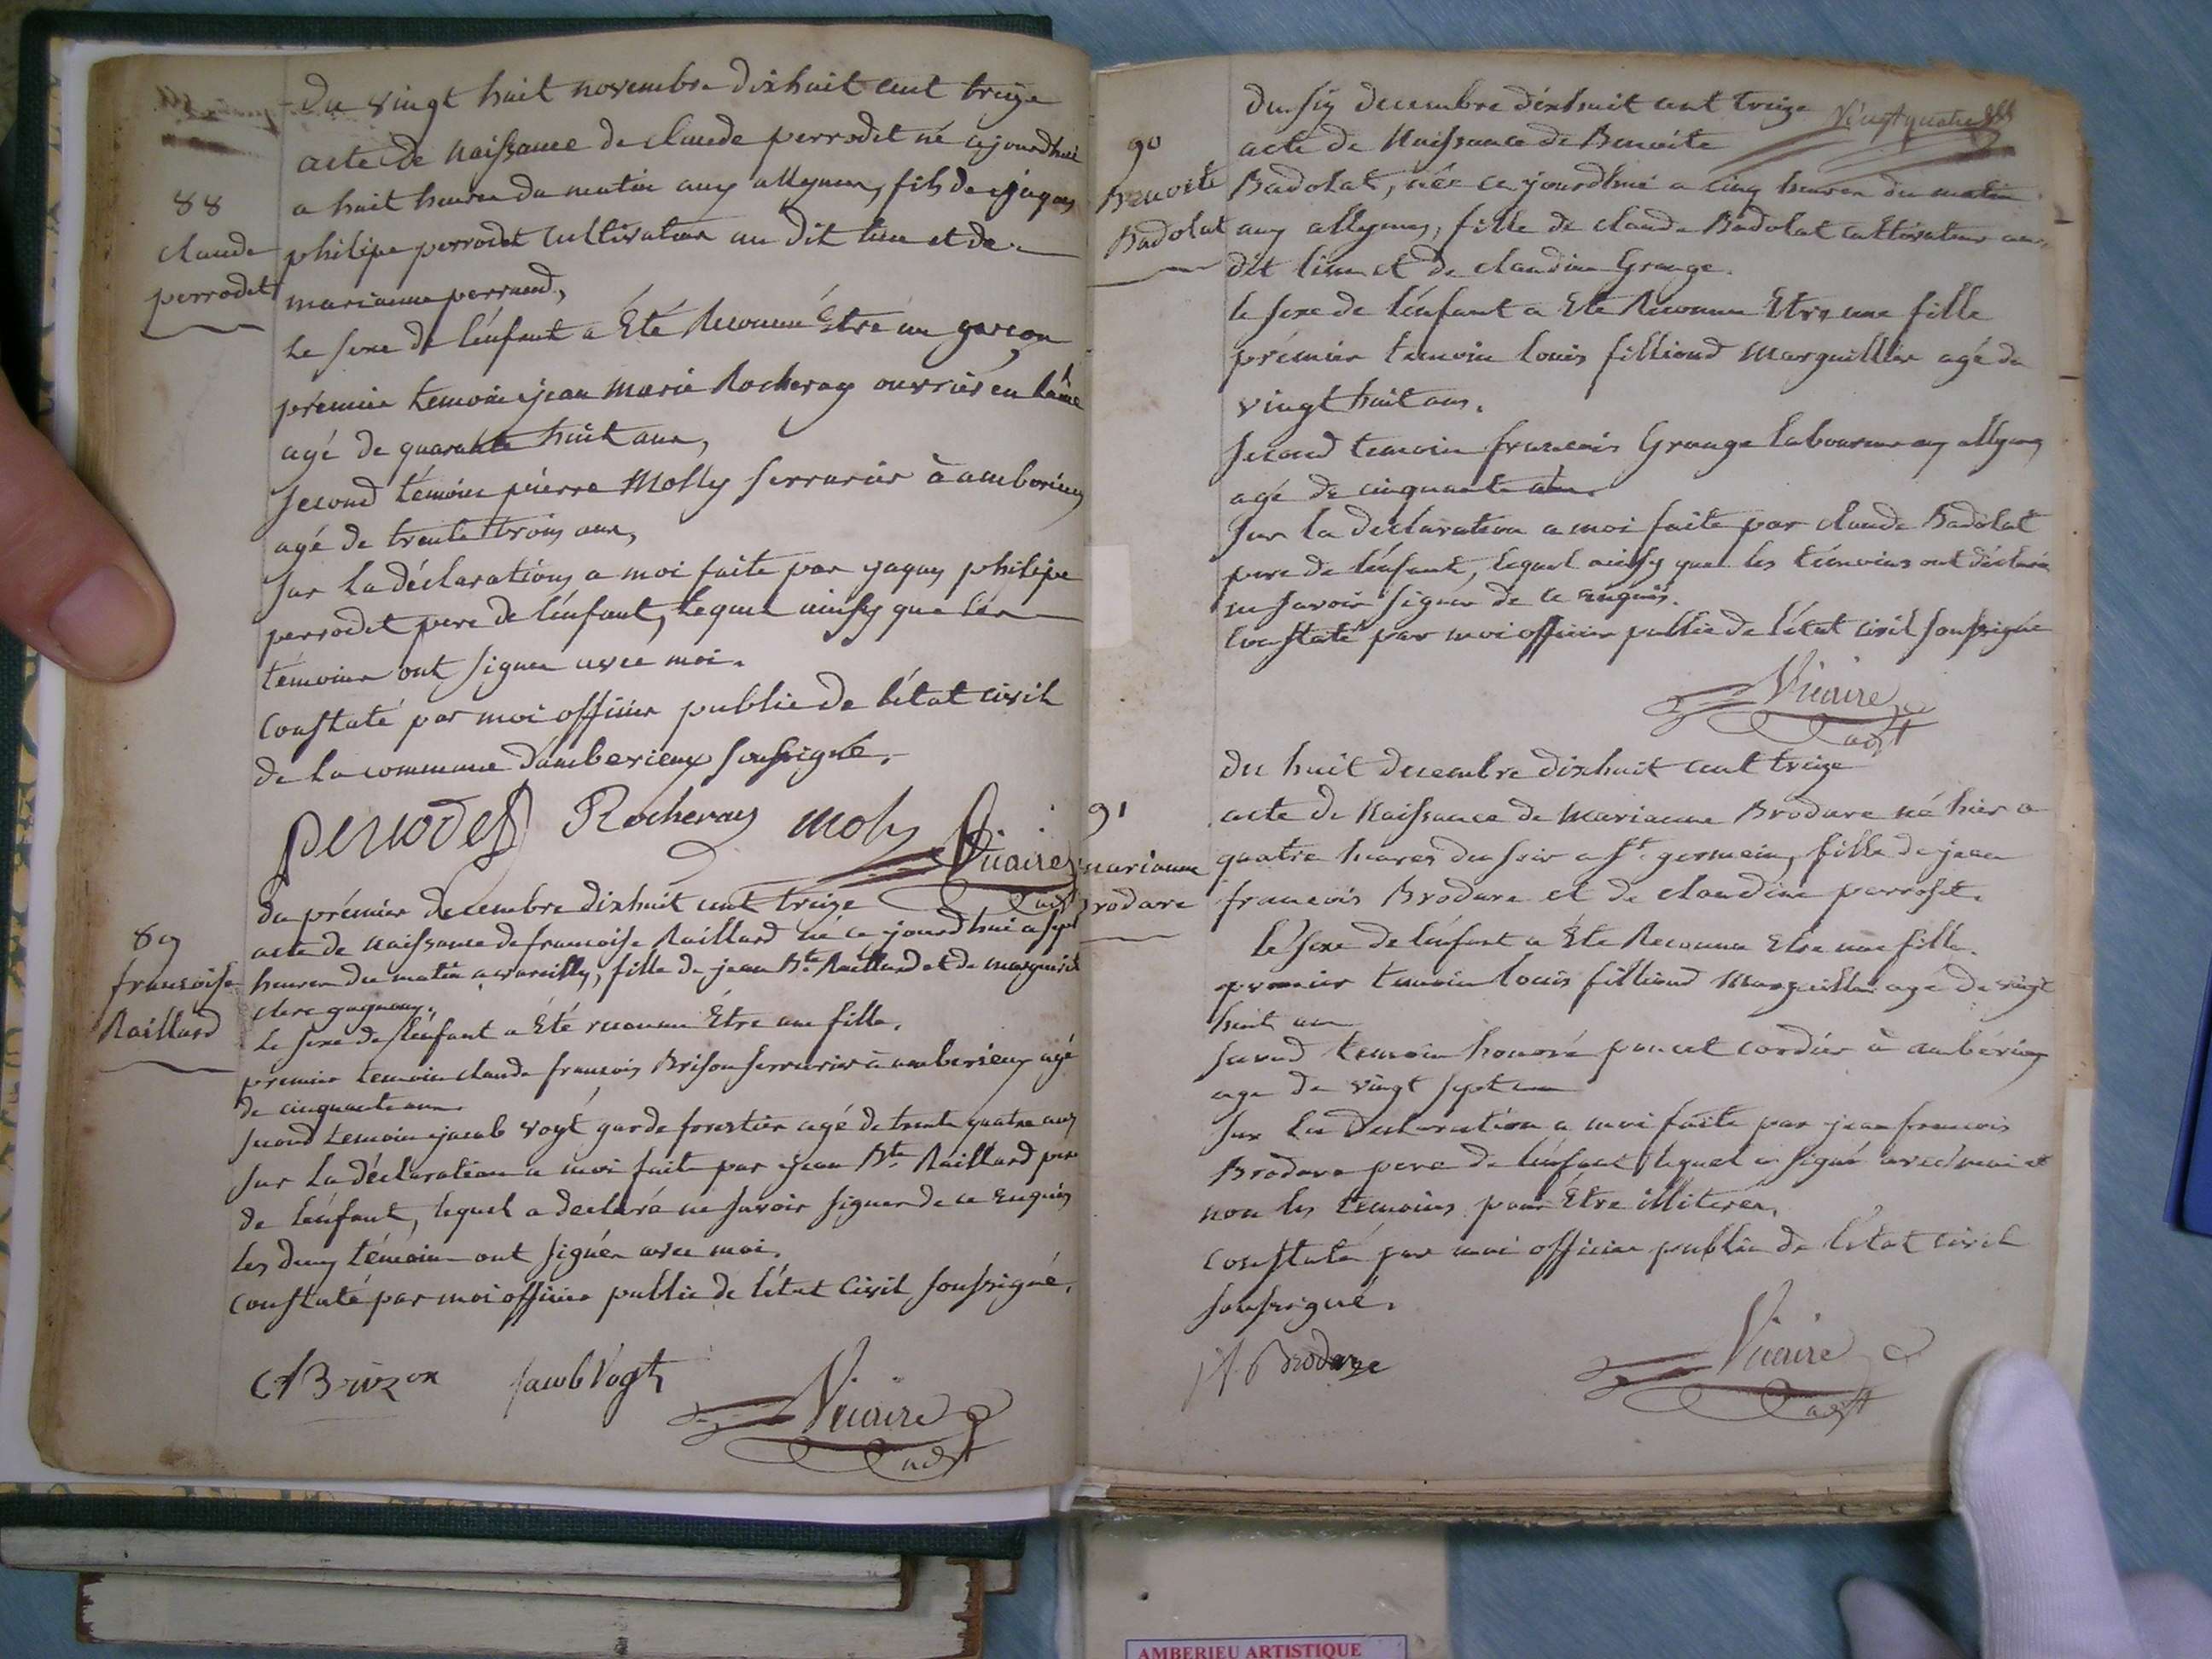 Du vingt huit novembre dixhuit cent treize
acte de naissance de claude perrodet né cejourdhui
a huit heures du matin aux allymes, fils de jaques
philipe perrodet cultivateur au dit lieu et de
marianne perraud,
88
claude
perrodet
Le sexe de l'enfant a Eté Reconnu Etre un garçon
prémier temoin jean marie Rocheray ouvrier en laine
agé de quarante huit ans,
second témoin pierre Molly serrurier à amberieux
agé de trente trois ans,
sur la déclarations a moi faite par jaques philipe
perrodet pere de l'enfant, lequel ainsy que les
témoins ont signer avec moi.
Constaté par moi officier public de l'état civil
de la commune d'amberieux soussigné.
perrodet Rocheray moly Vicaire
adjt
89
francoise
Raillard
du prémier decembre dixhuit cent treize
acte de naissance de francoise Raillard né ce jourdhui a sept
heures du matin a vareilly, fille de jean Bte. Raillard et de marguerite
clere gagneux.
Le sexe de l'enfant a Eté reconnu Etre une fille.
premier temoin claude francois Brison serrurier à amberieux agé
de cinquante ans.
second temoin jacob voyt garde forestier agé de trente quatre ans
sur la déclaration a moi faite par jean Bte. Raillard pere
de l'enfant, lequel a declaré ne savoir signer de ce enquis
les deux témoins ont signés avec moi.
Constaté par moi officier public de l'état civil soussigné.
Brizon Jacob Vogt
Vicaire
adjt
du six decembre dixhuit cent treize Vingt quatre
90
Benoite
Badolat
acte de Naissance de Benoite
Badolat, née ce jourdhui a cinq heures du matin
aux allymes, fille de claude Badolat cultivateur au
dit lieu et de claudine Grange.
le sexe de l'enfant a Eté Reconnu Etre une fille
prémier temoin louis filliond Marguillier agé de
vingt huit ans.
second temoin francois Grange laboureur aux allymes
agé de cinquante ans.
sur la declaration a moi faite par claude Badolat
pere de l'enfant, lequel ainsy que les témoins ont déclaré
ne savoir signer de ce enquis.
Constaté par moi officier public de l'état civil soussigné
Vicaire
adjt
91
marianne
Brodare
du huit decembre dixhuit cent treize
acte de Naissance de marianne Brodare né hier a
quatre heures du soir a St. germain, fille de jean
francois Brodare et de claudine perroset.
le sexe de l'enfant a Eté Reconnu Etre une fille.
premier temoin louis filliond Marguillier agé de vingt
huit ans
second temoin honoré poncet cordier à ambérieux
age de vingt sept ans
sur la declaration a moi faite par jean francois
Brodare pere de l'enfant lequel a signé avec moi et
non les temoins pour Etre illiteres,
Constaté par moi officier public de l'état civil
soussigné.
Brodare
Vicaire
adjt
AMBERIEU ARTISTIQUE